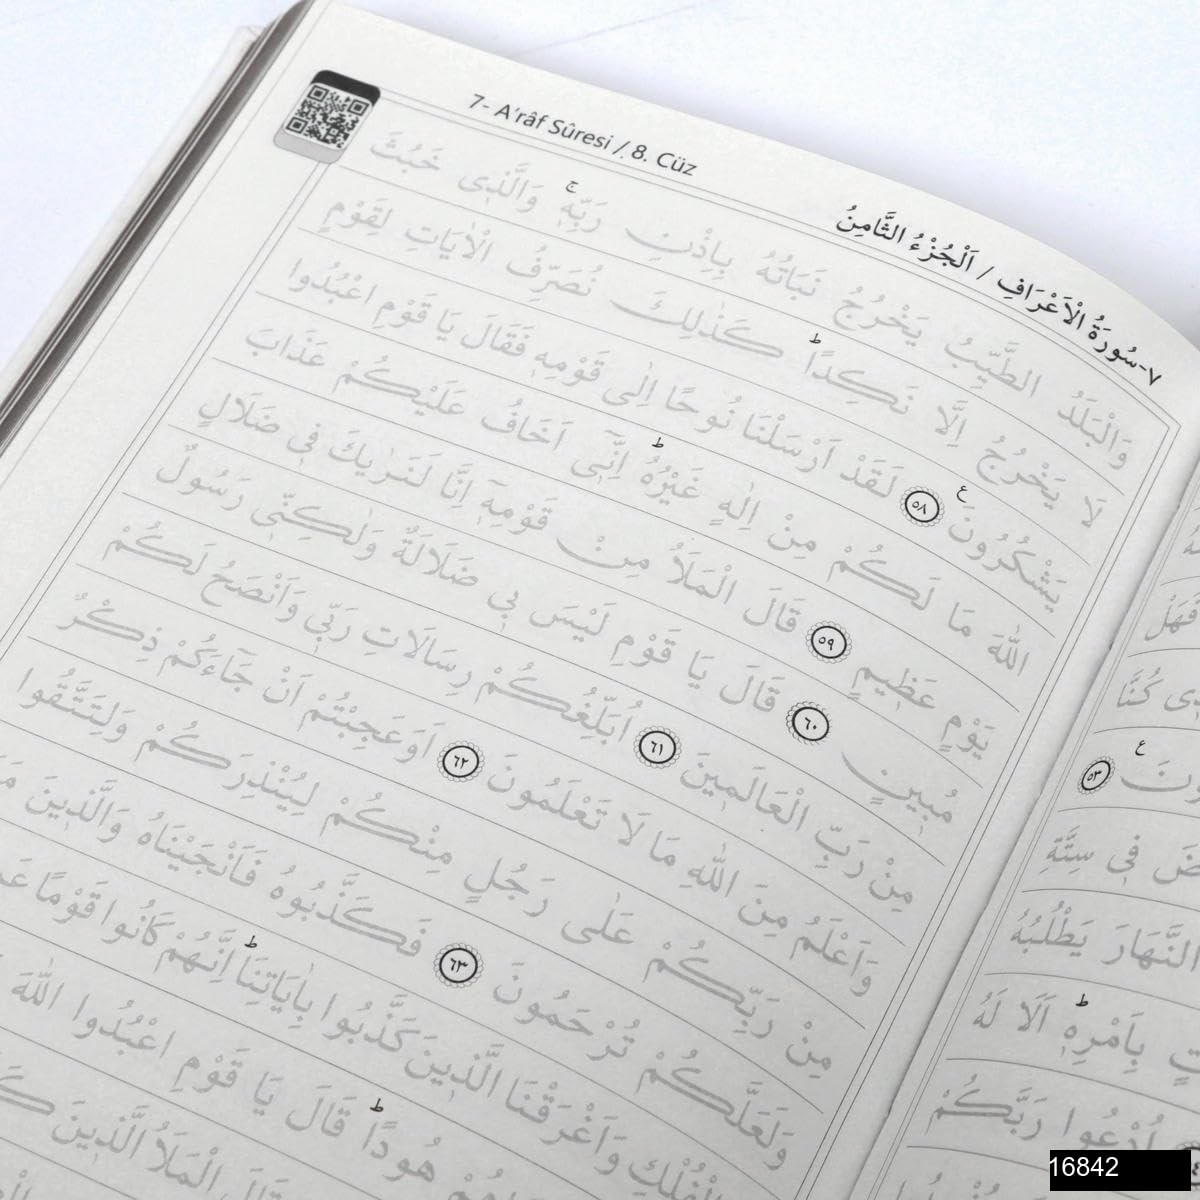 7- A'râf Sûresi / 8. Cüz
٧-سُورَةُ الْاَعْرَافِ / اَلْجُزْءُ الثَّامِنُ
وَالْبَلَدُ الطَّيِّبُ يَخْرُجُ نَبَاتُهُ بِاِذْنِ رَبِّهٖۚ وَالَّذٖى خَبُثَ
لَا يَخْرُجُ اِلَّا نَكِدًاؕ كَذٰلِكَ نُصَرِّفُ الْاٰيَاتِ لِقَوْمٍ
يَشْكُرُونَ ع ٥٨ لَقَدْ اَرْسَلْنَا نُوحًا اِلٰى قَوْمِهٖ فَقَالَ يَا قَوْمِ اعْبُدُوا
اللّٰهَ مَا لَكُمْ مِنْ اِلٰهٍ غَيْرُهُؕ اِنّٖٓى اَخَافُ عَلَيْكُمْ عَذَابَ
يَوْمٍ عَظٖيمٍ ٥٩ قَالَ الْمَلَاُ مِنْ قَوْمِهٖٓ اِنَّا لَنَرٰيكَ فٖى ضَلَالٍ
مُبٖينٍ ٦٠ قَالَ يَا قَوْمِ لَيْسَ بٖى ضَلَالَةٌ وَلٰكِنّٖى رَسُولٌ
مِنْ رَبِّ الْعَالَمٖينَ ٦١ اُبَلِّغُكُمْ رِسَالَاتِ رَبّٖى وَاَنْصَحُ لَكُمْ
وَاَعْلَمُ مِنَ اللّٰهِ مَا لَا تَعْلَمُونَ ٦٢ اَوَعَجِبْتُمْ اَنْ جَٓاءَكُمْ ذِكْرٌ
مِنْ رَبِّكُمْ عَلٰى رَجُلٍ مِنْكُمْ لِيُنْذِرَكُمْ وَلِتَتَّقُوا
وَلَعَلَّكُمْ تُرْحَمُونَ ٦٣ فَكَذَّبُوهُ فَاَنْجَيْنَاهُ وَالَّذٖينَ
الْفُلْكِ وَاَغْرَقْنَا الَّذٖينَ كَذَّبُوا بِاٰيَاتِنَاؕ اِنَّهُمْ كَانُوا قَوْمًا
هُودًاؕ قَالَ يَا قَوْمِ اعْبُدُوا اللّٰهَ
قَالَ الْمَلَاُ الَّذٖينَ
كُنَّا
٥٣ ع
فٖى سِتَّةِ
النَّهَارَ يَطْلُبُهُ
بِاَمْرِهٖؕ اَلَا لَهُ
اُدْعُوا رَبَّكُمْ
16842